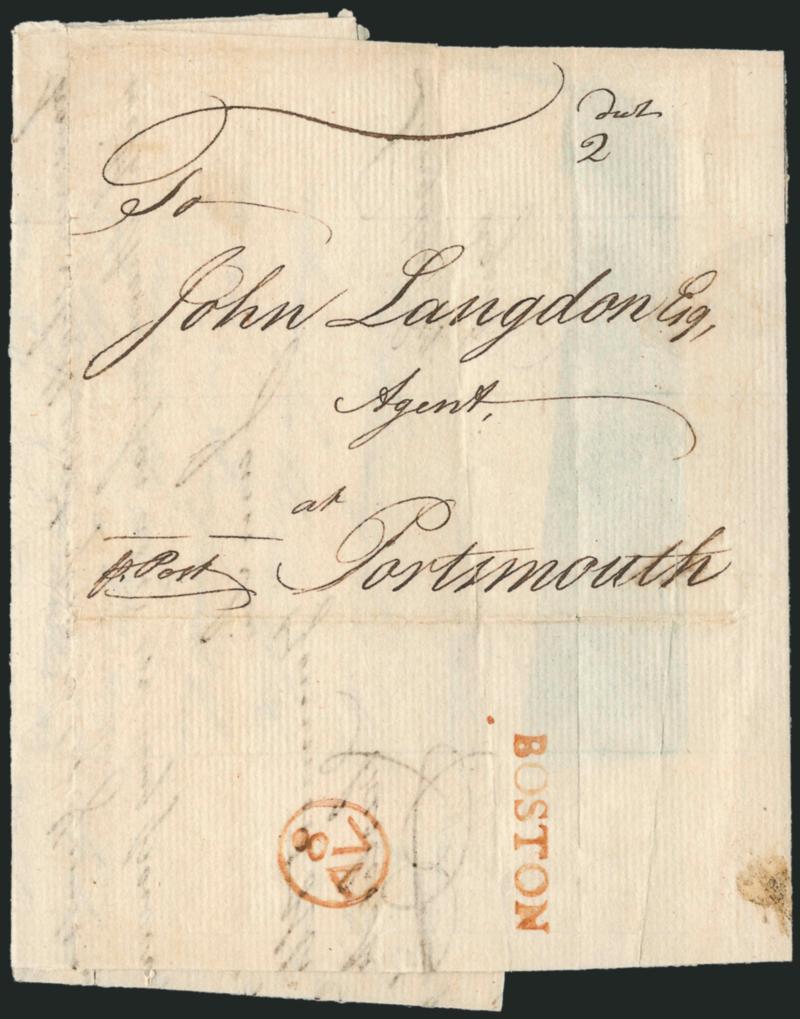 Dwt
2
To
John Langdon Esq,
Agent,
at
p. Post
Portsmouth
BOSTON
8
AV